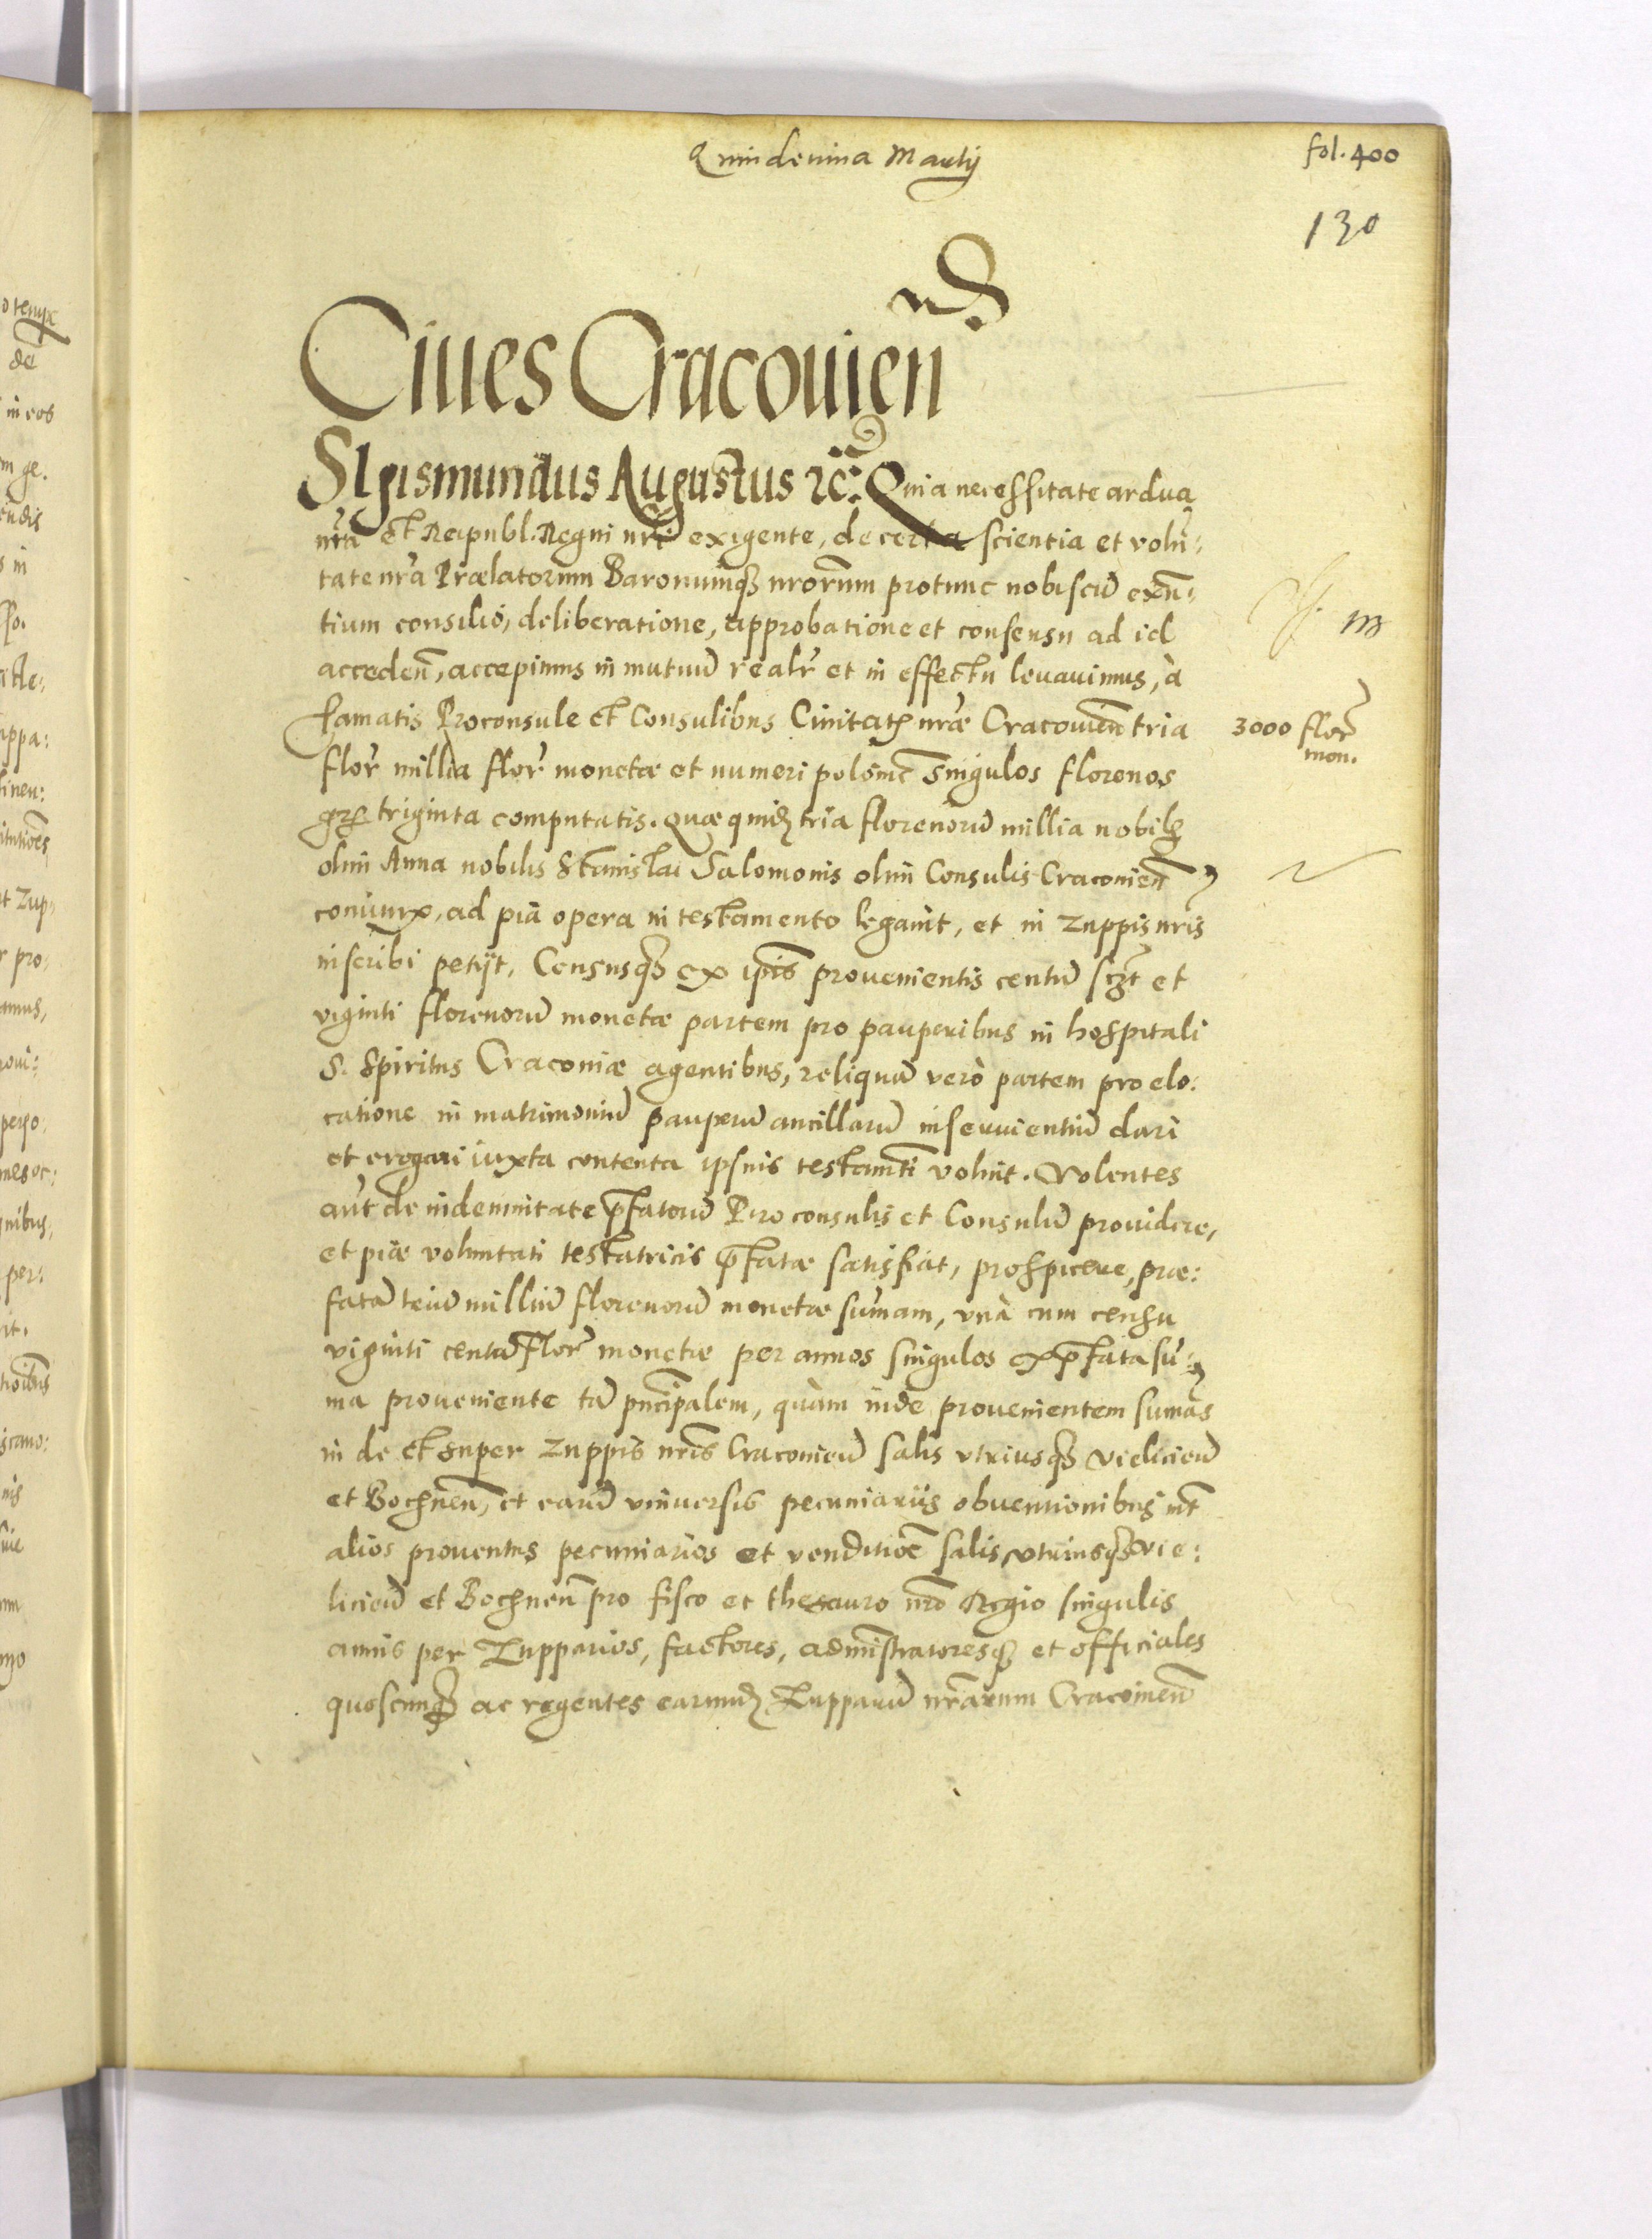 Quindenina Martij
fol. 400
130
Ciues Cracouien̄
SIgismundus Augustus ꝛc̄: Quia necessitate ardua
nr̄a et Reipubl. Regni nr̄i exigente, de certa scientia et volū:
tate nr̄a Prælatorum Baronumqꝫ nrōrum protunc nobiscū exn̄:
tium consilio, deliberatione, approbatione et consensu ad id
acceden̄, accepimus in mutuū realr̄ et in effectu leuauimus, à
famatis Proconsule et Consulibus Ciuitatꝭ nr̄æ Cracouien̄ tria
3000 flor̄
mon.
flor̄ millia flor̄ monetæ et numeri polonic̄ singulos florenos
gꝛꝭ triginta computatis. Quæ quidꝫ tria florenorū millia nobilꝭ
olim Anna nobilis Stanislai Salomonis olim Consulis Cracouien̄
coniunx, ad pia opera in testamento legauit, et in Zuppis nr̄is
inscribi petijt, Censusqꝫ ex ip̄is prouenientis centū scꝫt et
viginti florenorū monetæ partem pro pauperibus in hospitali
S. Spiritus Cracouiæ agentibus, reliquā verò partem pro elo:
catione in matrimoniū pauperū ancillarū inseruientiū dari
et erogari iuxta contenta ipsius testamt̄i voluit. Volentes
aūt de indemnitate p̄fatorū Proconsulis et Consulū prouidere,
et piæ voluntati testatricis p̄fatæ satisfiat, prospicere, præ:
fatā triū milliū florenorū monetæ sum̄am, vnà cum censu
viginti centū flor̄ monetæ per annos singulos ex p̄fata sum̄:
ma proueniente tā pn̄cipalem, quàm inde prouenientem sum̄as
in de et super Zuppis nr̄is Cracouien̄ salis vtriusqꝫ Vielicien̄
et Bochnen̄, et earū vniuersis pecuniarijs obuentionibus int̄
alios prouentus pecuniarios et venditiōe salis vtriusqꝫ Vie:
licien̄ et Bochnen̄ pro fisco et thesauro nr̄o Regio singulis
annis per Zupparios, factores, administratoresqꝫ et officiales
quoscunqꝫ ac regentes earundꝫ Zupparū nr̄arum Cracouien̄